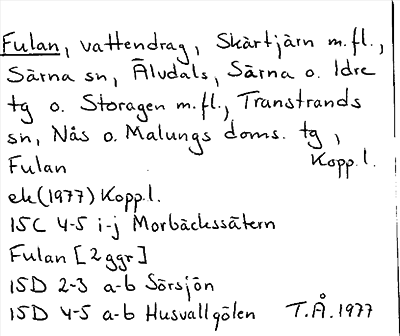 Fulan, vattendrag, Skärtjärn m.fl.,
Särna sn, Älvdals, Särna o. Idre
tg o. Storagen m.fl., Transtrands
sn, Nås o. Malungs doms. tg,
Fulan Kopp.l.
ek (1977) Kopp.l.
15C 4-5 i-j Morbäckssätern
Fulan [2 ggr]
15D 2-3 a-b Sörsjön
15D 4-5 a-b Husvallgölen T.Å. 1977